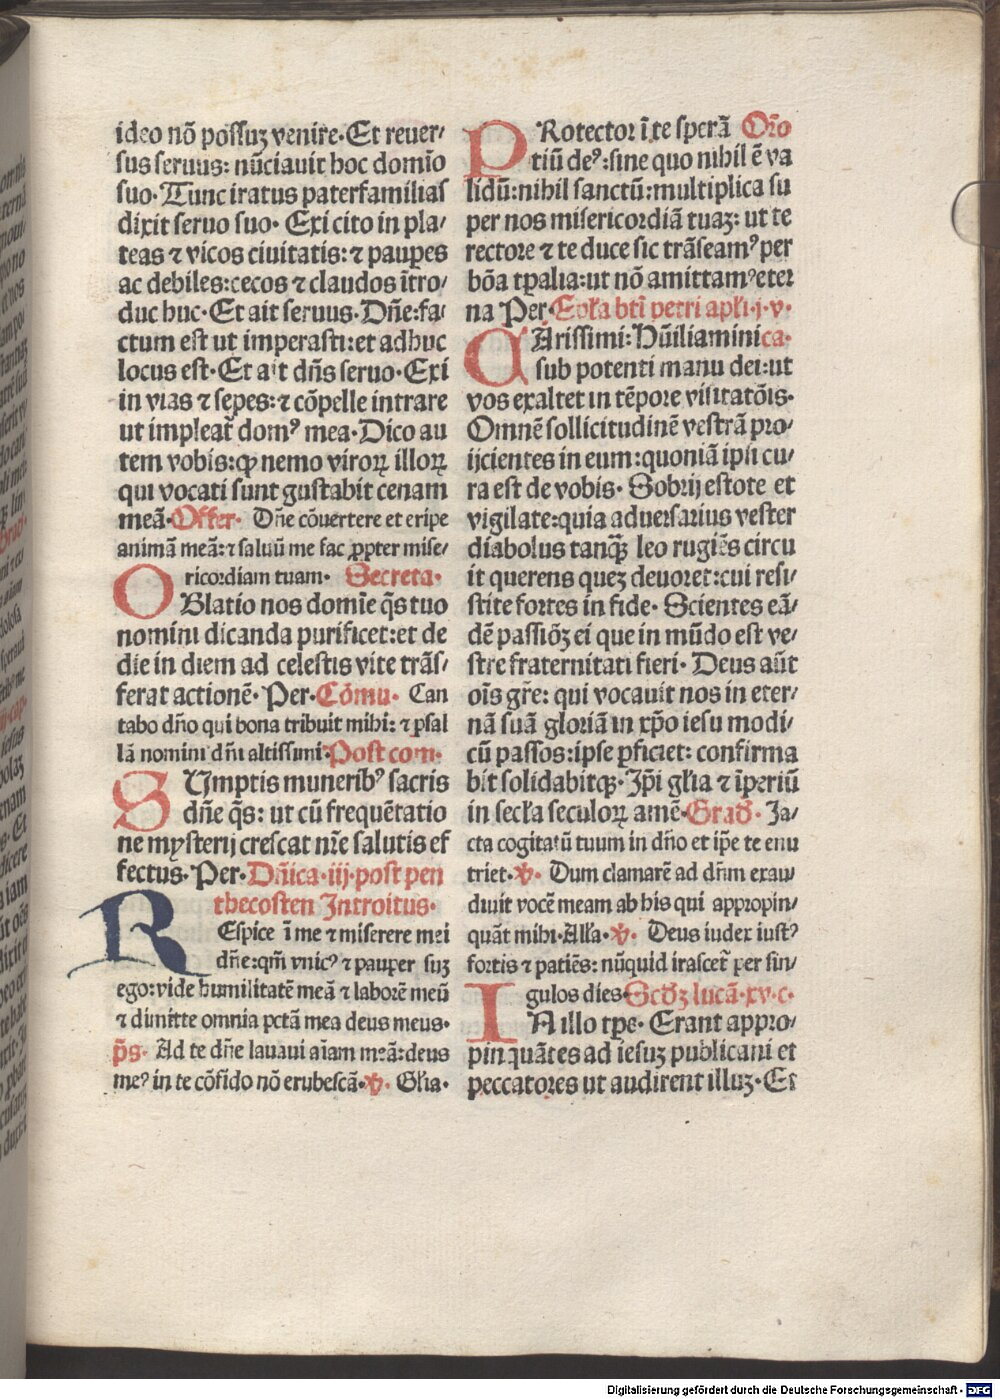 ideo nō possuꝫ venire·Et reuer/
sus seruus: nūciauit hoc domīo
suo·Tunc iratus paterfamilias
dixit seruo suo· Exi cito in pla/
teas ⁊ vicos ciuitatis: ⁊ pauꝑes
ac debiles:cecos ⁊ claudos ītro/
duc huc·Et ait seruus·Dn̄e:fa/
ctum est ut imperasti:et adhuc
locus est·Et ait dn̄s seruo·Exi
in vias ⁊ sepes:⁊ cōpelle intrare
ut impleat̄ domꝰ mea·Dico au
tem vobis:ꝙ nemo viroꝝ illoꝝ
qui vocati sunt gustabit cenam
meā·Offer· Dn̄e cōuertere et eripe
animā meā:⁊ saluū me fac ꝓpter mise/
ricordiam tuam· Secreta·
OBlatio nos domīe q̄s tuo
nomini dicanda purificet:et de
die in diem ad celestis vite trās/
ferat actionē·Per·Cōmu· Can
tabo dn̄o qui bona tribuit mihi: ⁊ psal
lā nomini dn̄i altissimi·Post com·
SUmptis muneribꝰ sacris
dn̄e q̄s: ut cū frequētatio
ne mysterij crescat nr̄e salutis ef
fectus·Per·Dn̄ica·iij·post pen
thecosten Introitus·
REspice ī me ⁊ miserere mei
dn̄e:qm̄ vnicꝰ ⁊ pauper suꝫ
ego:vide humilitatē meā ⁊ laborē meū
⁊ dimitte omnia pctā mea deus meus·
p̄s· Ad te dn̄e lauaui aīam meā:deus
meꝰ in te cōfido nō erubescā·v̄· Gl̄ia·
PRotector ī te sperā Or̄o
tiū deꝰ:sine quo nihil ē va
lidū:nihil sanctū:multiplica su
per nos misericordiā tuaꝫ: ut te
rectore ⁊ te duce sic trāseamꝰ per
bōa tꝑalia:ut nō amittamꝰ eter
na Per·Epl̄a bti̅ petri apl̄i·j·v·
CArissimi:Hūiliamini ca·
sub potenti manu dei:ut
vos exaltet in tēpore visitatōis·
Omnē sollicitudinē vestrā pro/
ijcientes in eum:quoniā ipsi cu/
ra est de vobis· Sobrij estote et
vigilate:quia aduersarius vester
diabolus tanq̄ꝫ leo rugiēs circu
it querens queꝫ deuoret:cui resi/
stite fortes in fide· Scientes eā/
dē passiōꝫ ei que in mūdo est ve/
stre fraternitati fieri· Deus aūt
oīs gr̄e: qui vocauit nos in eter/
nā suā gloriā in xp̄o iesu modi/
cū passos:ipse ꝑficiet: confirma
bit solidabitqꝫ·Ip̄i gl̄ia ⁊ īperiū
in secl̄a seculoꝝ amē·Grad̄· Ja/
cta cogitatū tuum in dn̄o et ip̄e te enu
triet·v̄· Dum clamarē ad dn̄m exau/
diuit vocē meam ab his qui appropin/
quāt mihi·All̄a·v̄· Deus iudex iustꝰ
fortis ⁊ patiēs: nūquid irascet̄ per sin/
gulos dies·Scd̄ꝫ lucā·xv·c·
IN illo tꝑe· Erant appro/
pinquātes ad iesuꝫ publicani et
peccatores ut audirent illuꝫ·Et
Digitalisierung gefördert durch die Deutsche Forschungsgemeinschaft - DFG